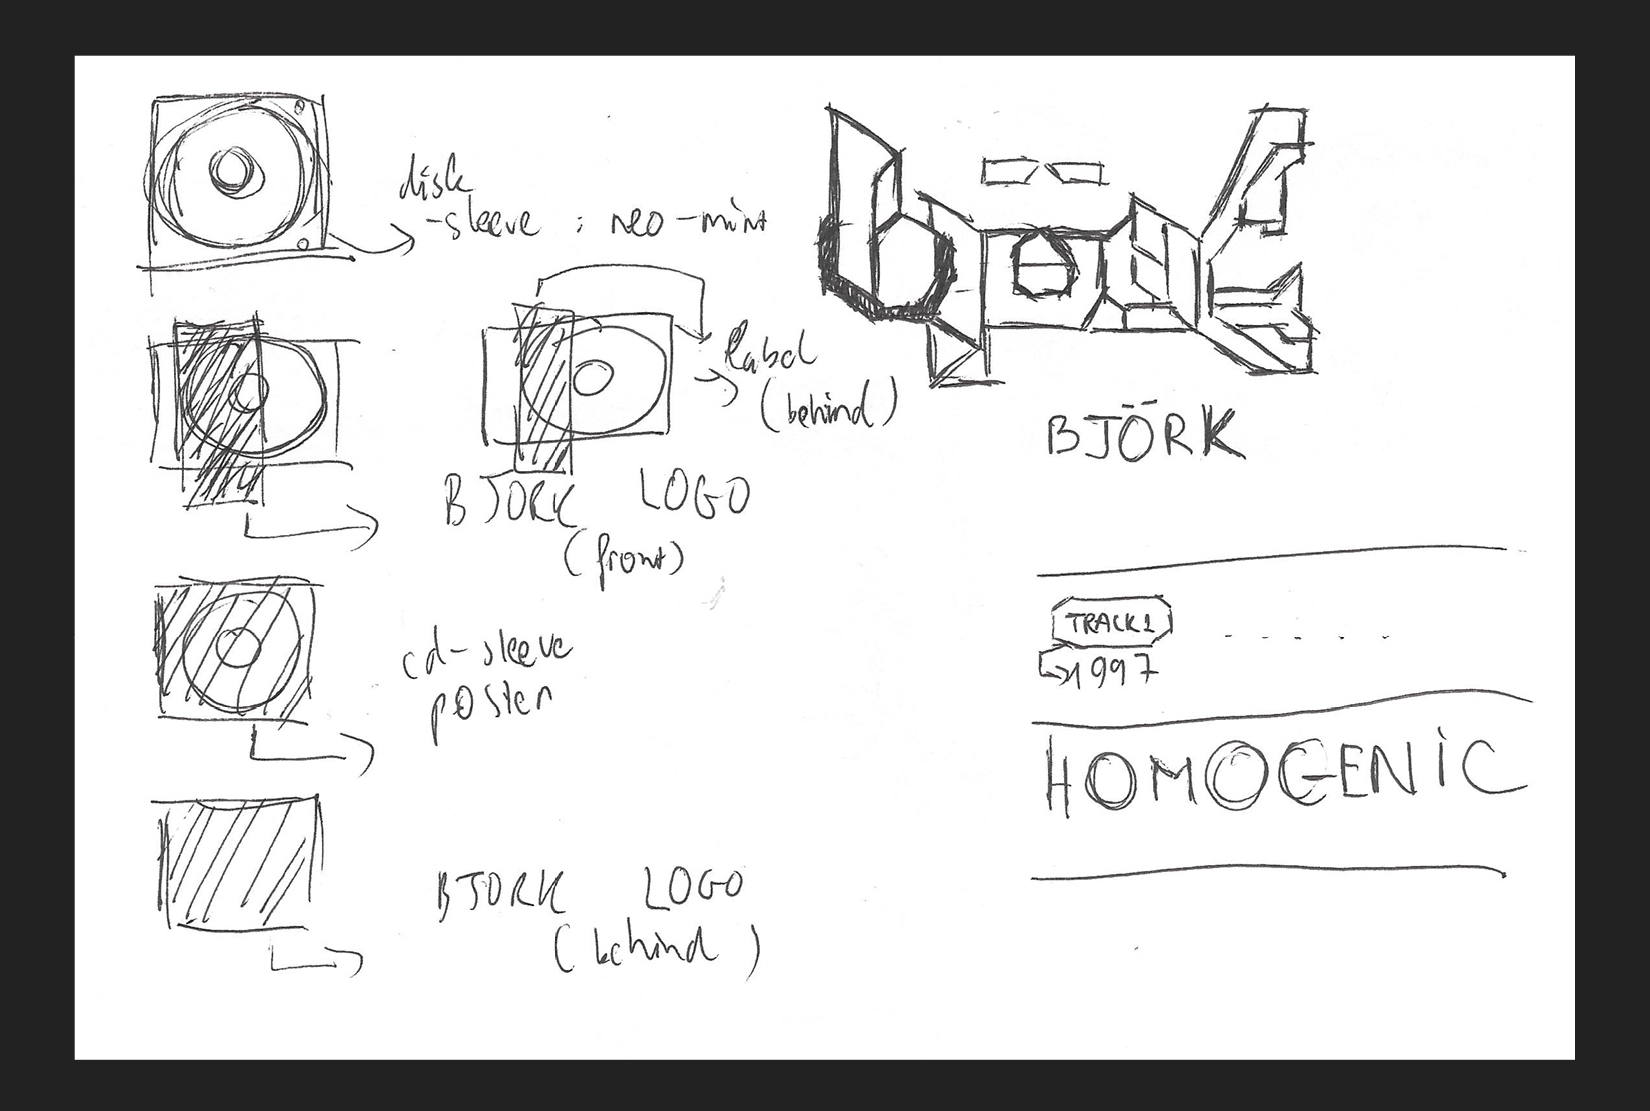 disk
-sleeve : neo-mint
Label
(behind)
BJORK LOGO
(front)
cd-sleeve
poster
BJORK LOGO
(behind)
björk
BJÖRK
TRACK1
1997
HOMOGENIC